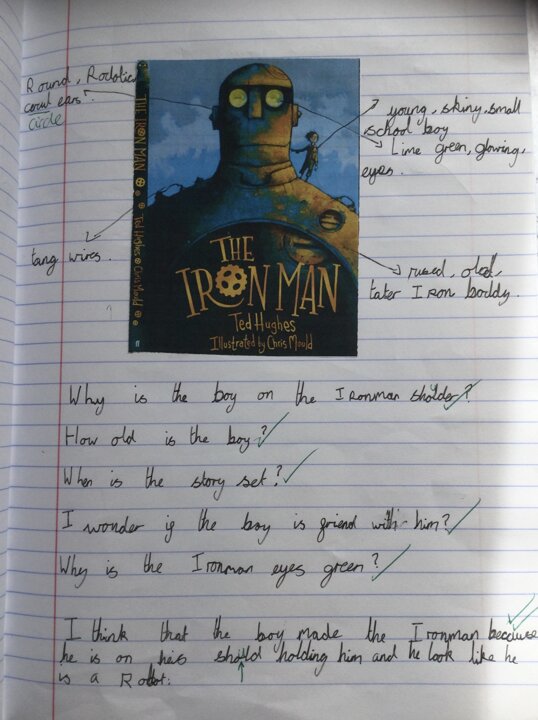 Round, Robotic
coul ears.
circle
young, skiny, small
school boy
Lime green, glowing,
eyes.
tang wires.
rused, oled,
tater Iron boddy.
THE IRON MAN
Ted Hughes
Chris Mould
THE
IRON MAN
Ted Hughes
Illustrated by Chris Mould
Why is the boy on the Ironman sholder?
How old is the boy?
When is the story set?
I wonder if the boy is friend with him?
Why is the Ironman eyes green?
I think that the boy made the Ironman because
he is on his holding him and he look like he
is a Robot.